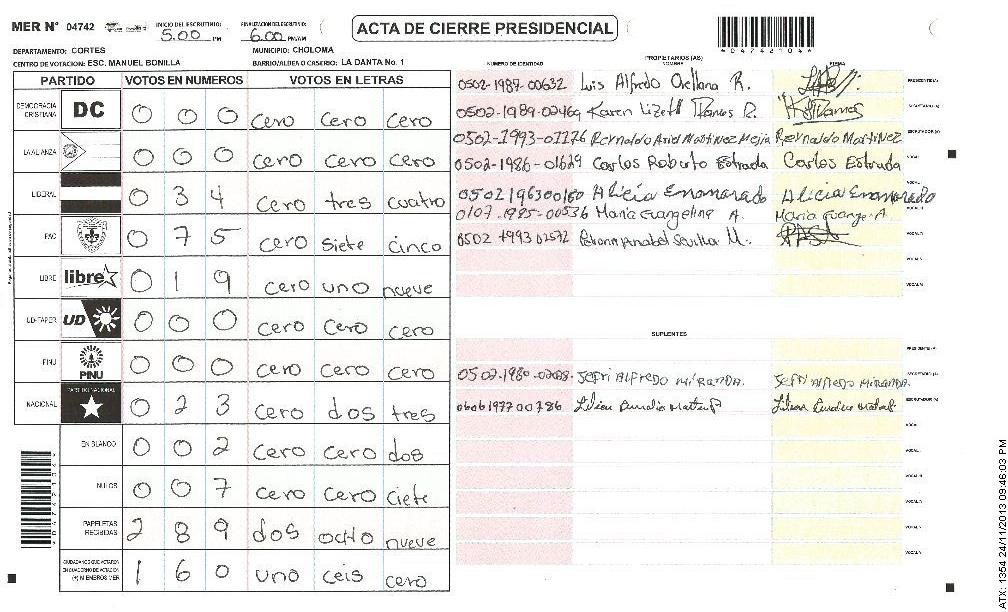 MER N° 04742
INICIO DEL ESCRUTINIO: 5.00 PM
FINALIZACION DEL ESCRUTINIO: 6.00 PM/AM
ACTA DE CIERRE PRESIDENCIAL
*04742104*
DEPARTAMENTO: CORTES
MUNICIPIO: CHOLOMA
CENTRO DE VOTACION: ESC. MANUEL BONILLA
BARRIO/ALDEA O CASERIO: LA DANTA No. 1
PARTIDO VOTOS EN NUMEROS VOTOS EN LETRAS
DEMOCRACIA CRISTIANA DC 0 0 0 cero cero cero
LA ALIANZA 0 0 0 cero cero cero
LIBERAL 0 3 4 cero tres cuatro
PAC 0 7 5 cero siete cinco
LIBRE libre 0 1 9 cero uno nueve
UD-FAPER UD 0 0 0 cero cero cero
PINU PINU 0 0 0 cero cero cero
NACIONAL PARTIDO NACIONAL 0 2 3 cero dos tres
EN BLANCO 0 0 2 cero cero dos
NULOS 0 0 7 cero cero ciete
PAPELETAS RECIBIDAS 2 8 9 dos ocho nueve
CIUDADANOS QUE VOTARON EN CUADERNO DE VOTACION (+) MIEMBROS MER 1 6 0 uno ceis cero
PROPIETARIOS (AS)
NUMERO DE IDENTIDAD NOMBRE FIRMA
0502-1987-00632 Luis Alfredo Orellana R. PRESIDENTE (A)
0502-1989-02469 Karen Lizeth Ramos R. KRamos SECRETARIO (A)
0502-1993-01176 Reynaldo Ariel Martinez Mejia Reynaldo Martinez ESCRUTADOR (A)
0502-1986-01629 Carlos Roberto Estrada Carlos Estrada VOCAL I
0502 1963 00160 Alicia Enamorado Alicia Enamorado
0107-1985-00536 Maria Evangelina A.
0502 1993 02572 Anabel Sevilla M.
SUPLENTES
PRESIDENTE (A)
Jefri Alfredo Miranda. Jefri Alfredo Miranda. SECRETARIO (A)
0606 1977 00786 ESCRUTADOR (A)
ATX: 1354 24/11/2013 09:46:03 PM